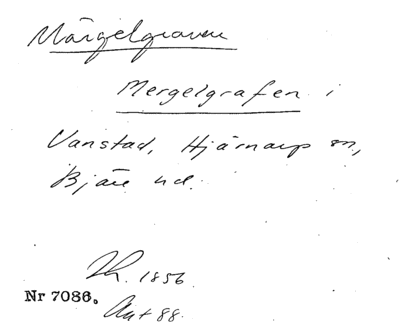 Märgelgraven
Mergelgrafen i
Vanstad, Hjärnarp sn,
Bjäre hd.
Lh. 1856
Nr 7086.
Ant 88.